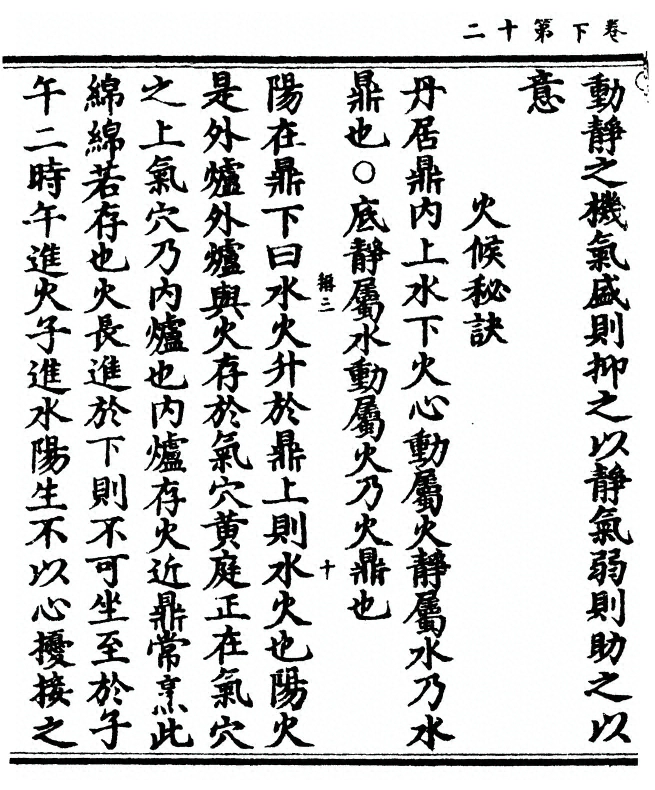 卷下第十二
動靜之機氣盛則抑之以靜氣弱則助之以
意
火候秘訣
丹居鼎內上水下火心動屬火靜屬水乃水
鼎也○底靜屬水動屬火乃火鼎也
稱三
十
陽在鼎下曰水火升於鼎上則水火也陽火
是外爐外爐與火存於氣穴黃庭正在氣穴
之上氣穴乃內爐也內爐存火近鼎常烹此
綿綿若存也火長進於下則不可坐至於子
午二時午進火子進水陽生不以心擾接之